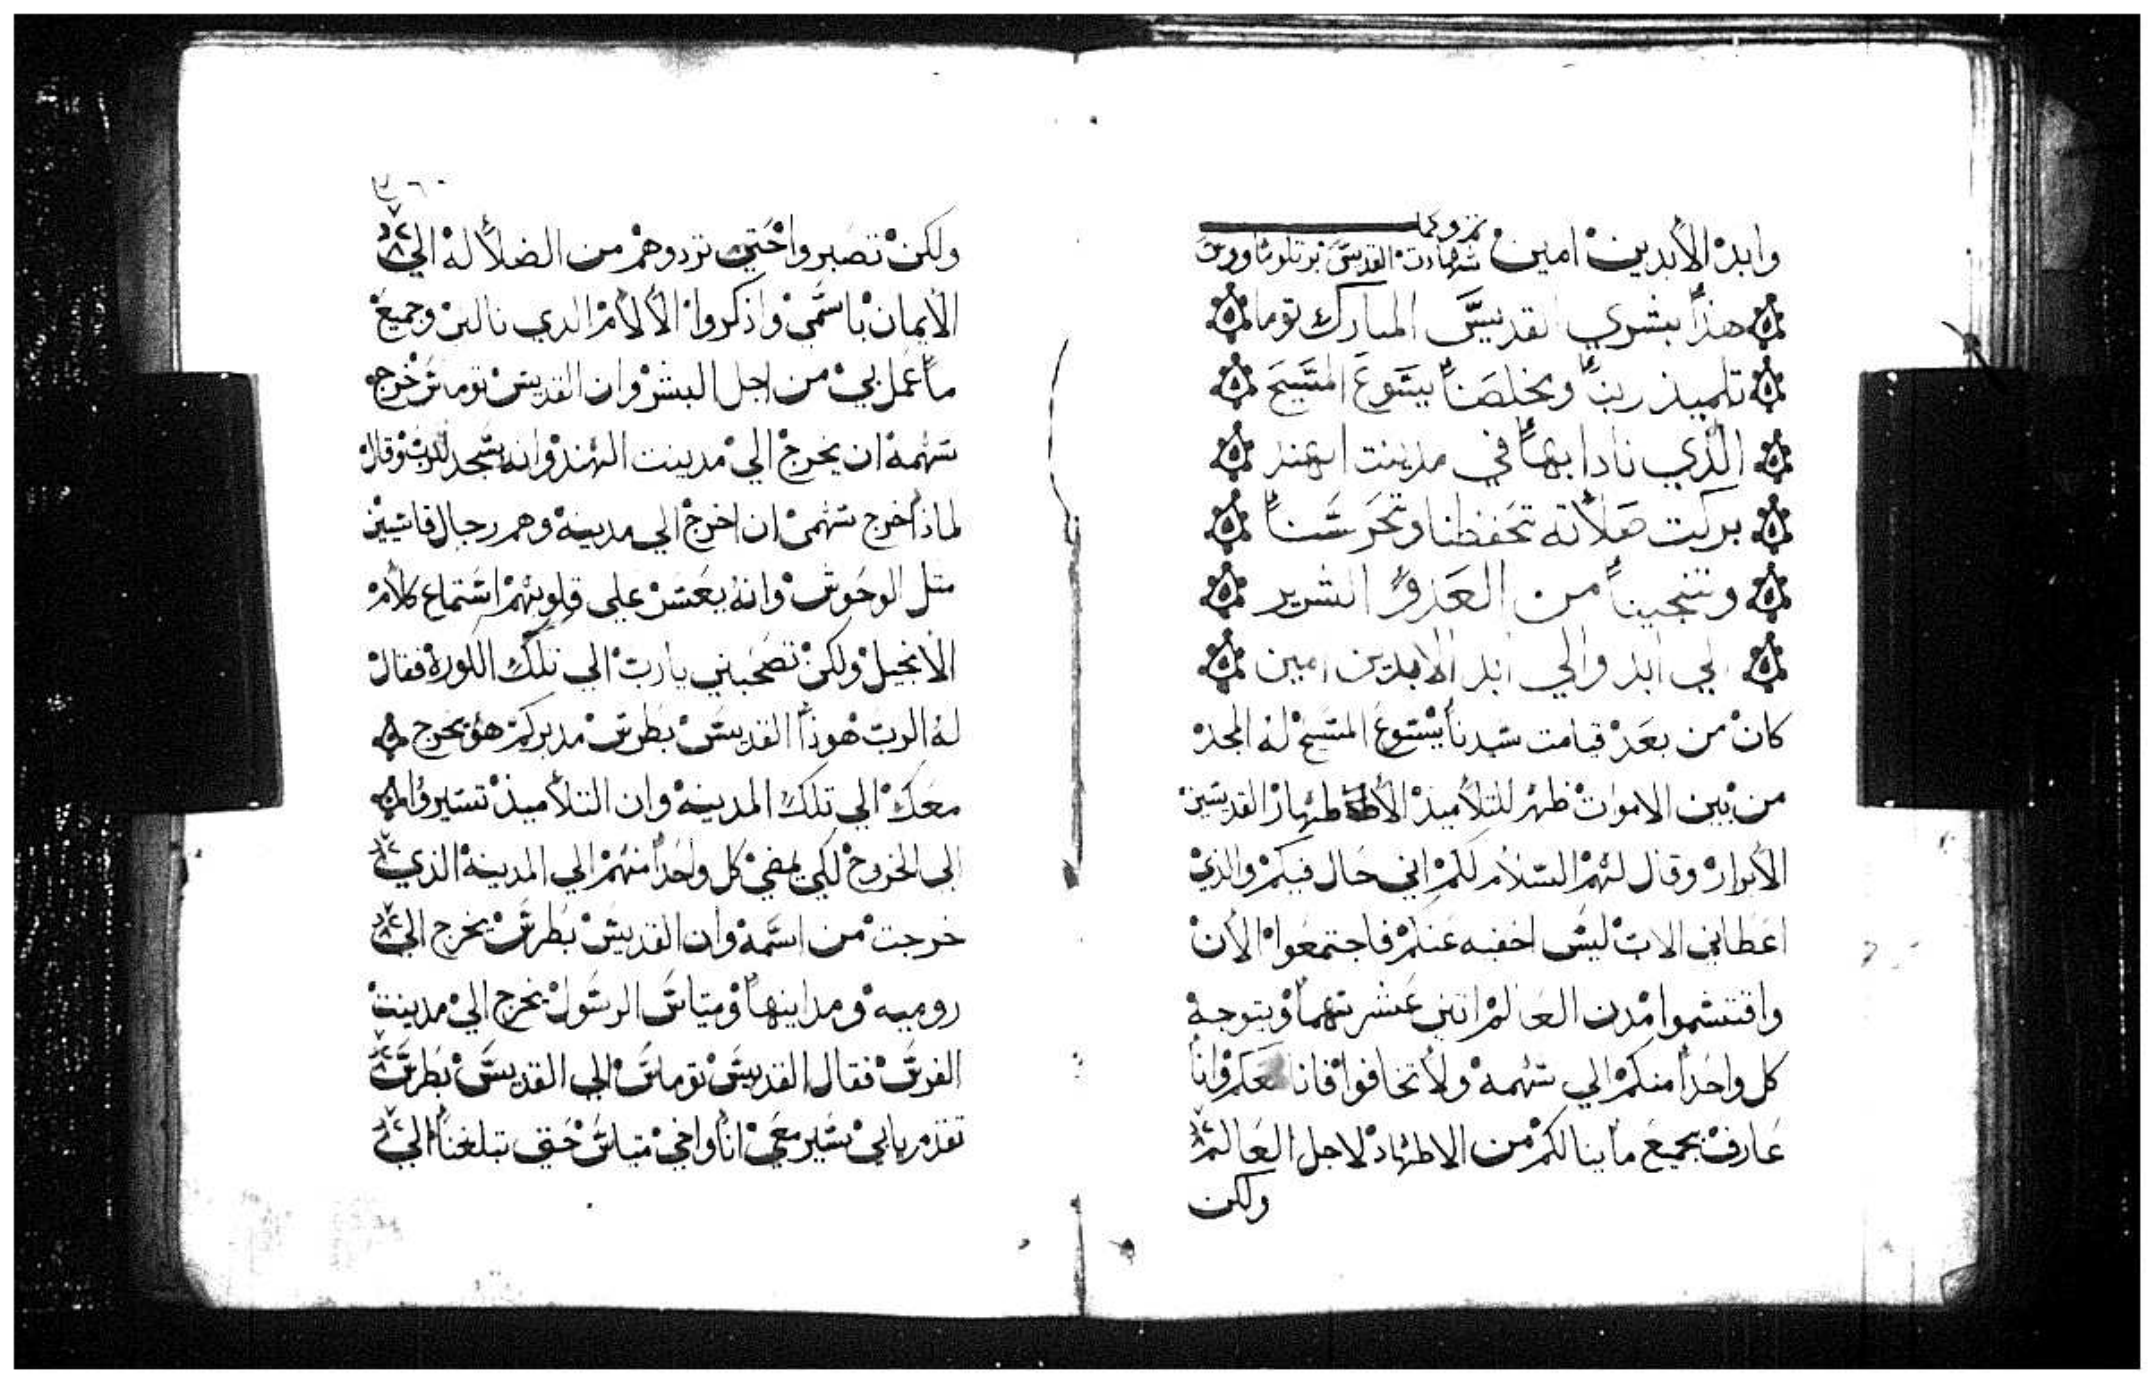 وابد الأبدين امين تم وكمل
شهادت القديس برتلوماوس
هذا بشري القديس المبارك توما
تلميذ ربنا ومخلصنا يسوع المسيح
الذي نادا بها في مدينت الهند
بركت صلاته تحفظنا وتحرسنا
وتنجينا من العدو الشرير
الي ابد والي ابد الابدين امين
كان من بعد قيامت سيدنا يسوع المسيح له المجد
من بين الاموات ظهر للتلاميذ الأطهار القديسين
الأبرار وقال لهم السلام لكم اني حال فيكم والذي
اعطاني الاب ليس اخفيه عنكم فاجتمعوا الأن
واقتسموا مدن العالم اتني عشر سهما ويتوجه
كل واحدا منكم الي سهمه ولا تخافوا فانا معكم وانا
عارف بجميع ما ينالكم من الاطهاد لاجل العالم
ولكن
٢٦٠
ولكن تصبروا حتي تردوهم من الضلاله الي
الأيمان باسمي واذكروا الألام الدي نالني وجميع
ما عمل بي من اجل البشر وان القديس توماس خرج
سهمه ان يخرج الي مدينت الهند وانه سجد للرب وقال
لماذا خرج سهمي ان اخرج الي مدينه وهم رجال قاسيين
متل الوحوش وانه يعسر علي قلوبهم استماع كلام
الأنجيل ولكن تصحبني يارب الي تلك الكوره فقال
له الرب هوذا القديس بطرس مدبركم هو يخرج
معك الي تلك المدينه وان التلاميذ تسيروا
الي الخروج لكي يمضي كل واحدا منهم الي المدينه الذي
خرجت من اسمه وان القديس بطرس يخرج الي
روميه ومداينها ومتياس الرسول يخرج الي مدينت
الفرس فقال القديس توماس الي القديس بطرس
تقدم ياابي سير معي انا واخي متياس حتي تبلغنا الي